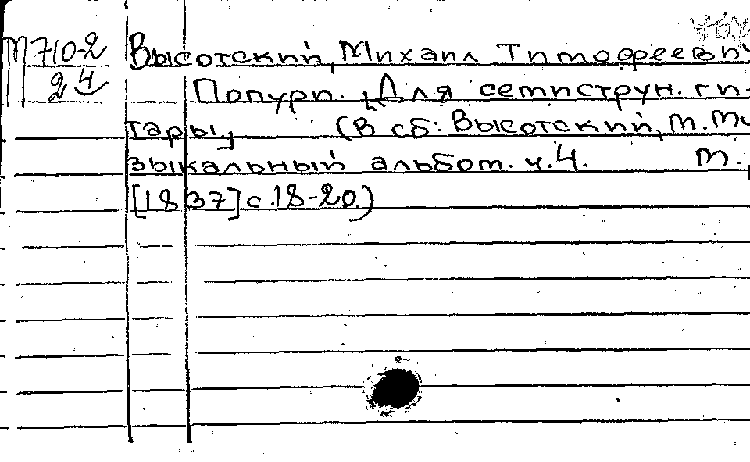 М710-2
24
Высотский, Михаил Тимофеевич
Попурри. [Для семиструн. ги-
тары]    (В сб: Высотский, М. Му
зыкальный альбом. ч.4.    М.,
[1837] с.18-20.)